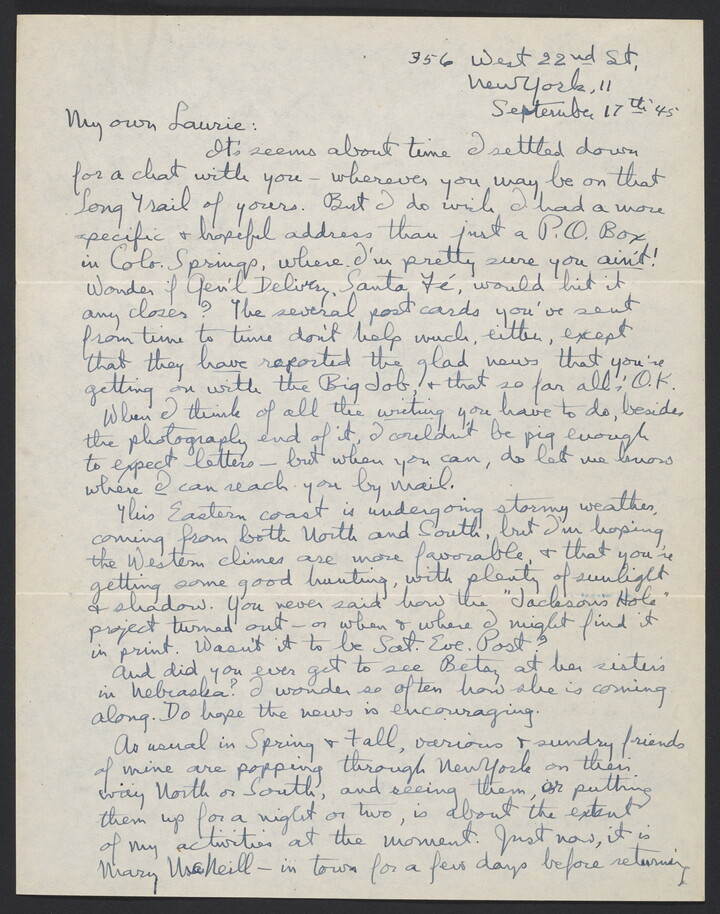 356 West 22nd St,
New York, 11
September 17th 45
My own Laurie:
It's seems about time I settled down
for a chat with you – wherever you may be on that
Long Trail of yours. But I do wish I had a more
specific & hopeful address than just a P.O. Box
in Colo. Springs, where I'm pretty sure you ain't!
Wonder if Gen'l Delivery, Santa Fé, would hit it
any closer? The several post cards you've sent
from time to time don't help much, either, except
that they have reported the glad news that you're
getting on with the Big Job, & that so far all's O.K.
When I think of all the writing you have to do, besides
the photography end of it, I couldn't be pig enough
to expect letters – but when you can, do let me know
where I can reach you by mail.
This Eastern coast is undergoing stormy weather,
coming from both North and South, but I'm hoping
the Western climes are more favorable, & that you're
getting some good hunting, with plenty of sunlight
& shadow. You never said how the "Jackson's Hole"
project turned out – or when & where I might find it
in print. Wasn't it to be Sat. Eve. Post?
And did you ever get to see Betsy at her sister's
in Nebraska? I wonder so often how she is coming
along. Do hope the news is encouraging.
As usual in Spring & Fall, various & sundry friends
of mine are popping through New York on their
way North or South, and seeing them, or putting
them up for a night or two, is about the extent
of my activities at the moment. Just now, it is
Mary MacNeill – in town for a few days before returning